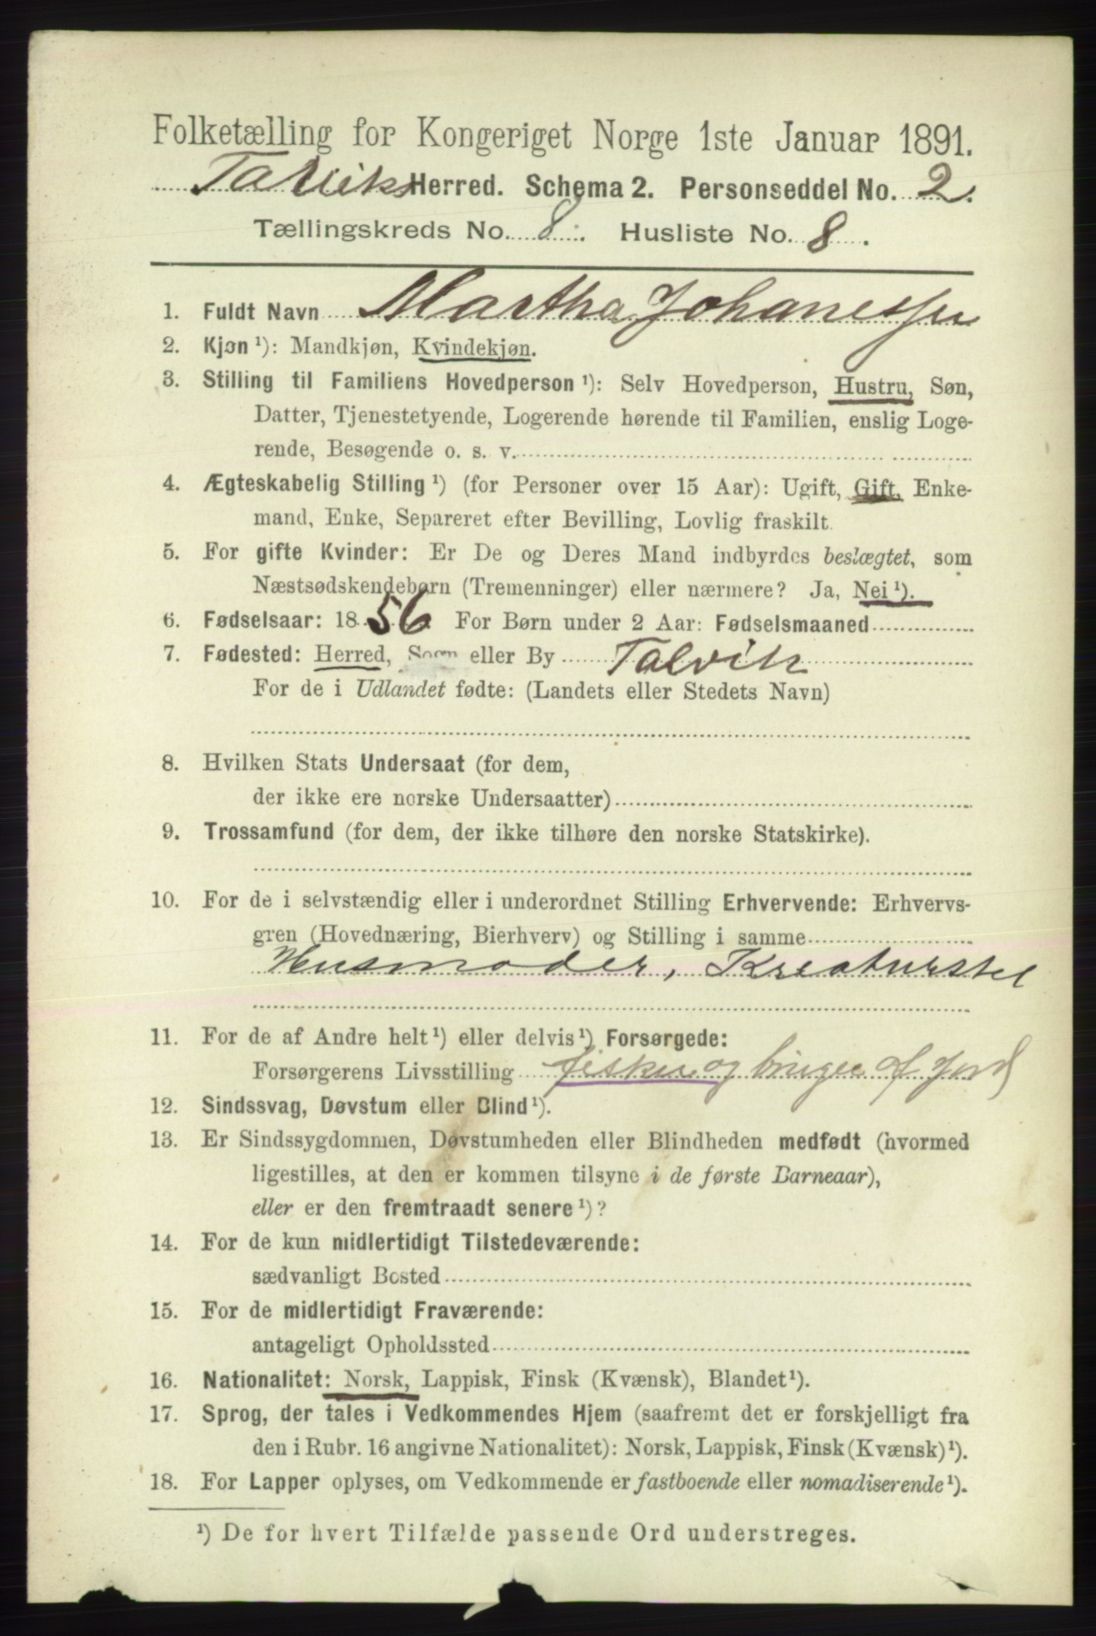 Folketælling for Kongeriget Norge 1ste Januar 1891.
Talviks Herred. Schema 2. Personseddel No. 2.
Tællingskreds No. 8. Husliste No. 8.
1. Fuldt Navn Martha Johanessen
2. Kjøn ¹): Mandkjøn, Kvindekjøn.
3. Stilling til Familiens Hovedperson ¹): Selv Hovedperson, Hustru, Søn,
Datter, Tjenestetyende, Logerende hørende til Familien, enslig Loge-
rende, Besøgende o. s. v.
4. Ægteskabelig Stilling ¹) (for Personer over 15 Aar): Ugift, Gift, Enke-
mand, Enke, Separeret efter Bevilling, Lovlig fraskilt.
5. For gifte Kvinder: Er De og Deres Mand indbyrdes beslægtet, som
Næstsødskendebørn (Tremenninger) eller nærmere? Ja, Nei ¹).
6. Fødselsaar: 1856 For Børn under 2 Aar: Fødselsmaaned
7. Fødested: Herred, Sogn eller By Talvik
For de i Udlandet fødte: (Landets eller Stedets Navn)
8. Hvilken Stats Undersaat (for dem,
der ikke ere norske Undersaatter)
9. Trossamfund (for dem, der ikke tilhøre den norske Statskirke).
10. For de i selvstændig eller i underordnet Stilling Erhvervende: Erhvervs-
gren (Hovednæring, Bierhverv) og Stilling i samme
Husmoder, Kreaturstel
11. For de af Andre helt ¹) eller delvis ¹) Forsørgede:
Forsørgerens Livsstilling fisker og bruger af Jord
12. Sindssvag, Døvstum eller Blind ¹).
13. Er Sindssygdommen, Døvstumheden eller Blindheden medfødt (hvormed
ligestilles, at den er kommen tilsyne i de første Barneaar),
eller er den fremtraadt senere ¹)?
14. For de kun midlertidigt Tilstedeværende:
sædvanligt Bosted
15. For de midlertidigt Fraværende:
antageligt Opholdssted
16. Nationalitet: Norsk, Lappisk, Finsk (Kvænsk), Blandet ¹).
17. Sprog, der tales i Vedkommendes Hjem (saafremt det er forskjelligt fra
den i Rubr. 16 angivne Nationalitet): Norsk, Lappisk, Finsk (Kvænsk) ¹).
18. For Lapper oplyses, om Vedkommende er fastboende eller nomadiserende ¹).
¹) De for hvert Tilfælde passende Ord understreges.